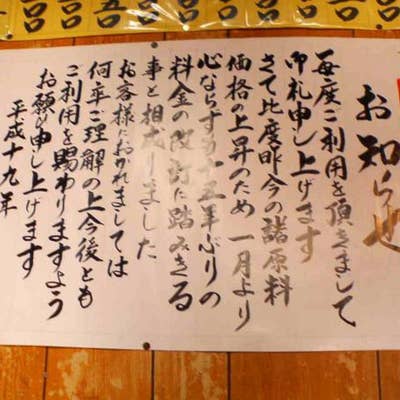 お知らせ
毎度ご利用を頂きまして
御礼申し上げます
さて比度昨今の諸原料
価格の上昇のため一月より
心ならずも十五年ぶりの
料金の改訂に踏みきる
事と相成りました
お客様におかれましては
何卒ご理解の上今後とも
ご利用を賜わりますよう
お願い申し上げます
平成十九年